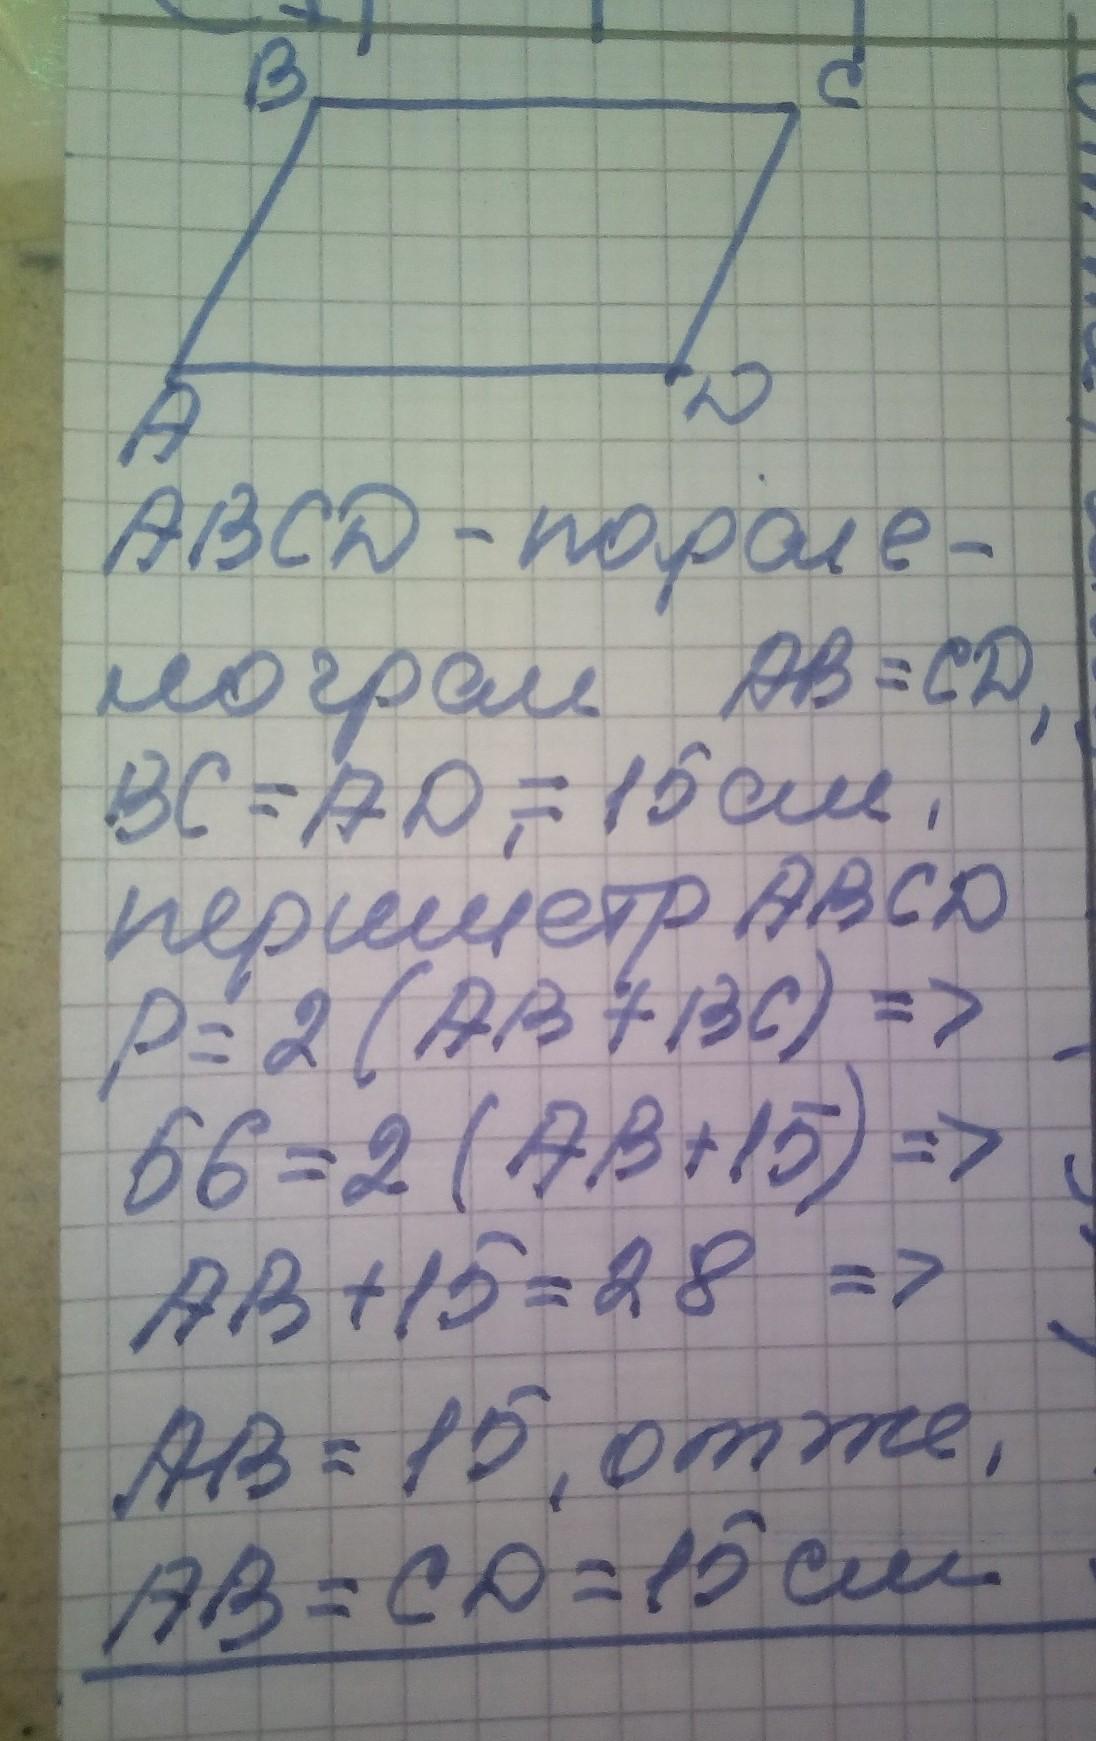 B C
A D
ABCD - пороле-
лограм AB = CD,
BC = AD, = 15 см,
периметр ABCD
P = 2 (AB + BC) =>
56 = 2 (AB + 15) =>
AB + 15 = 28 =>
AB = 15, отже,
AB = CD = 15 см